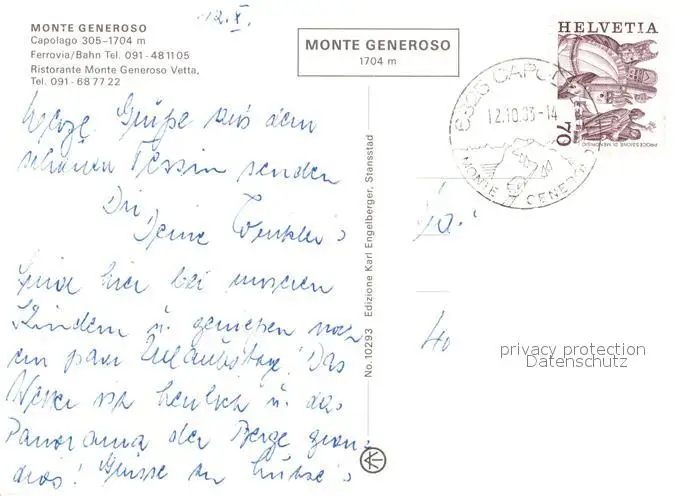 12.X.
MONTE GENEROSO
Capolago 305–1704 m
Ferrovia/Bahn Tel. 091 - 48 11 05
Ristorante Monte Generoso Vetta,
Tel. 091 - 68 77 22
MONTE GENEROSO
1704 m
HELVETIA
70
PROCESSIONE DI MENDRISIO
6825 CAPOLAGO
12.10.83-14
MONTE GENEROSO
Grüße aus dem
schönen Tessin senden
Dir
Deine
Sind hier bei unseren
Kindern u. genießen noch
ein paar Urlaubstage! Das
Wetter ist herrlich u. das
Panorama der Berge gran-
dios! Grüsse an
No. 10293 Edizione Karl Engelberger, Stansstad
privacy protection
Datenschutz